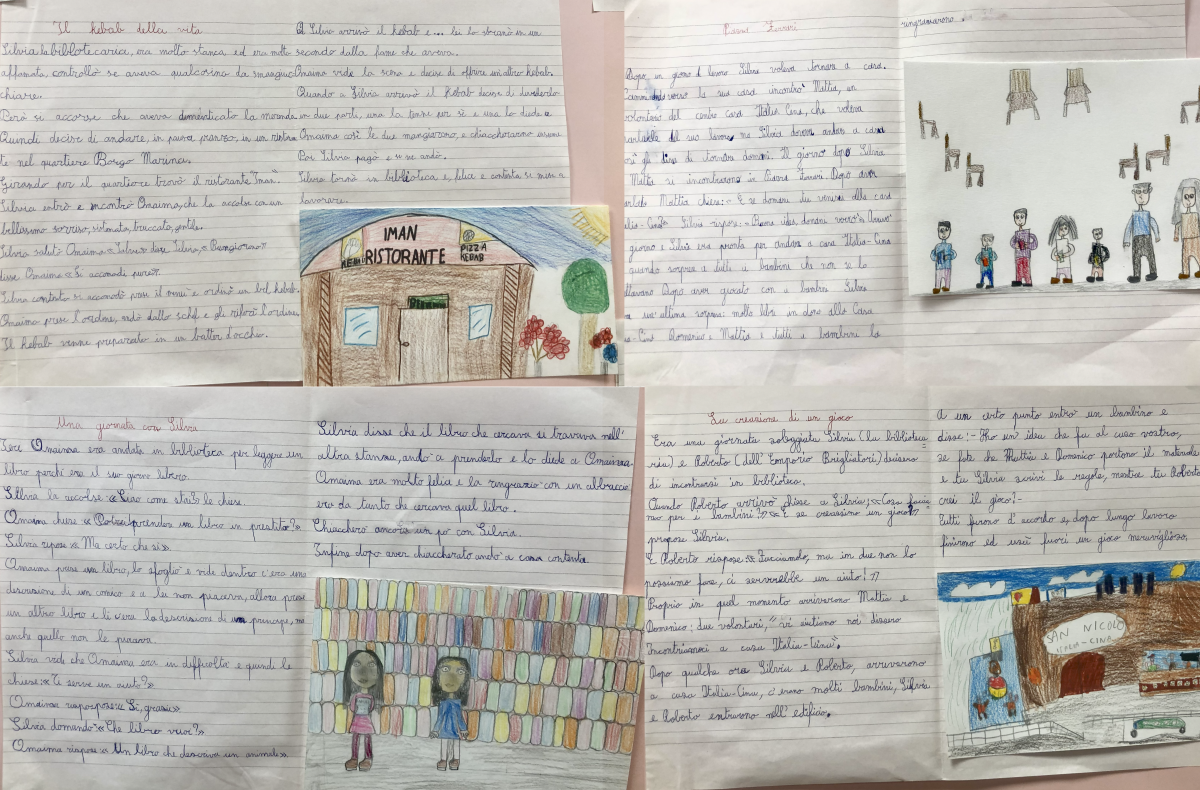 Il kebab della vita
Silvia la bibliotecaria, era molto stanca ed era molto
affamata, controllò se aveva qualcosina da smangiuc
chiare.
Però si accorse che aveva domenticato la merenda
Quindi decise di andare, in pausa pranzo, in un ristora
te nel quartiere Borgo Marina.
Girando per il quartiere trovò il ristorante "Iman"
Silvia entrò e incontrò Omaima, che la accolse con un
bellissimo sorriso, sistemata, truccata, gentile.
Silvia salutò Omaima «Salve» disse Silvia, «Buongiorno»
disse Omaima «Si accomodi pure».
Silvia contenta si accomodò prese il menù e ordinò un bel kebab.
Omaima prese l'ordine, andò dallo schef e gli riferì l'ordine.
Il kebab venne preparato in un batter d'occhio.
A Silvia arrivò il kebab e... lei lo sbranò in un
secondo dalla fame che aveva.
Omaima vide la scena e decise di offrire un'altro kebab.
Quando a Silvia arrivò il kebab decise di dividerlo
in due parti, una la tenne per sé e una lo diede a
Omaima così le due mangiarono, e chiacchierarono insieme
Poi Silvia pagò e se ne andò.
Silvia tornò in biblioteca e, felice e contenta si mise a
lavorare.
IMAN
RISTORANTE
KEBAB
PIZZA
KEBAB
Dopo un giorno di lavoro Silvia voleva tornare a casa.
Camminando verso la sua casa incontrò Mattia, un
volontario del centro casa Italia Cina, che voleva
parlarle del suo lavoro, ma Silvia doveva andare a casa
così gli disse di tornare domani. Il giorno dopo Silvia
Mattia si incontrarono in
Mattia chiese: - E se domani tu venissi alla casa
giorno e Silvia era pronta per andare a casa Italia-Cina
quando sorprese a tutti i bambini che non se lo
Dopo aver giocato con i bambini Silvia
un'ultima sorpresa: molti libri in dono alla Casa
Domenico e Mattia e tutti i bambini la
ringraziarono.
Una giornata con Silvia
Ieri Omaima era andata in biblioteca per leggere un
libro perché era il suo giorno libero.
Silvia la accolse «Ciao come stai?» le chiese.
Omaima chiese «Potrei prendere un libro in prestito?»
Silvia rispose «Ma certo che si».
Omaima prese un libro, lo sfogliò e vide dentro c'era una
descrizione di un comico e a lei non piaceva, allora prese
un altro libro e lì c'era la descrizione di un principe, ma
anche quello non le piaceva.
Silvia vide che Omaima era in difficoltà e quindi le
chiese «Ti serve un aiuto?»
Omaima «Sì, grazie»
Silvia domandò «Che libro vuoi?»
Omaima rispose «Un libro che descriva un animale».
Silvia disse che il libro che cercava si trovava nell'
altra stanza, andò a prenderlo e lo diede a Omaima.
Omaima era molto felice e la ringraziò con un abbraccio
era da tanto che cercava quel libro.
Chiaccherò ancora un pò con Silvia.
Infine dopo aver chiaccherato andò a casa contenta.
La creazione di un gioco
Era una giornata soleggiata Silvia (la biblioteca
ria) e Roberto (dell'Emporio Brigliatori) decisero
di incontrarsi in biblioteca.
Quando Roberto arrivò chiese a Silvia: «Cosa faccia
mo per i bambini?» «E se creassimo un gioco?»
propose Silvia.
E Roberto rispose «Facciamolo, ma in due non lo
possiamo fare, ci servirebbe un aiuto!»
Proprio in quel momento arrivarono Mattia e
Domenico: due volontari, "vi aiutiamo noi dissero
Incontriamoci a casa Italia-Cina".
Dopo qualche ora Silvia e Roberto, arrivarono
a casa Italia-Cina, c'erano molti bambini, Silvia
e Roberto entrarono nell'edificio.
A un certo punto entrò un bambino e
disse: - Ho un'idea che fa al caso vostro,
se fate che Mattia e Domenico portino il materiale
e tu Silvia scrivi le regole, mentre tu Roberto
crei il gioco! -
Tutti furono d'accordo e, dopo lungo lavoro
finirono ed uscì fuori un gioco meraviglioso.
SAN NICOLÒ
ITALIA-CINA